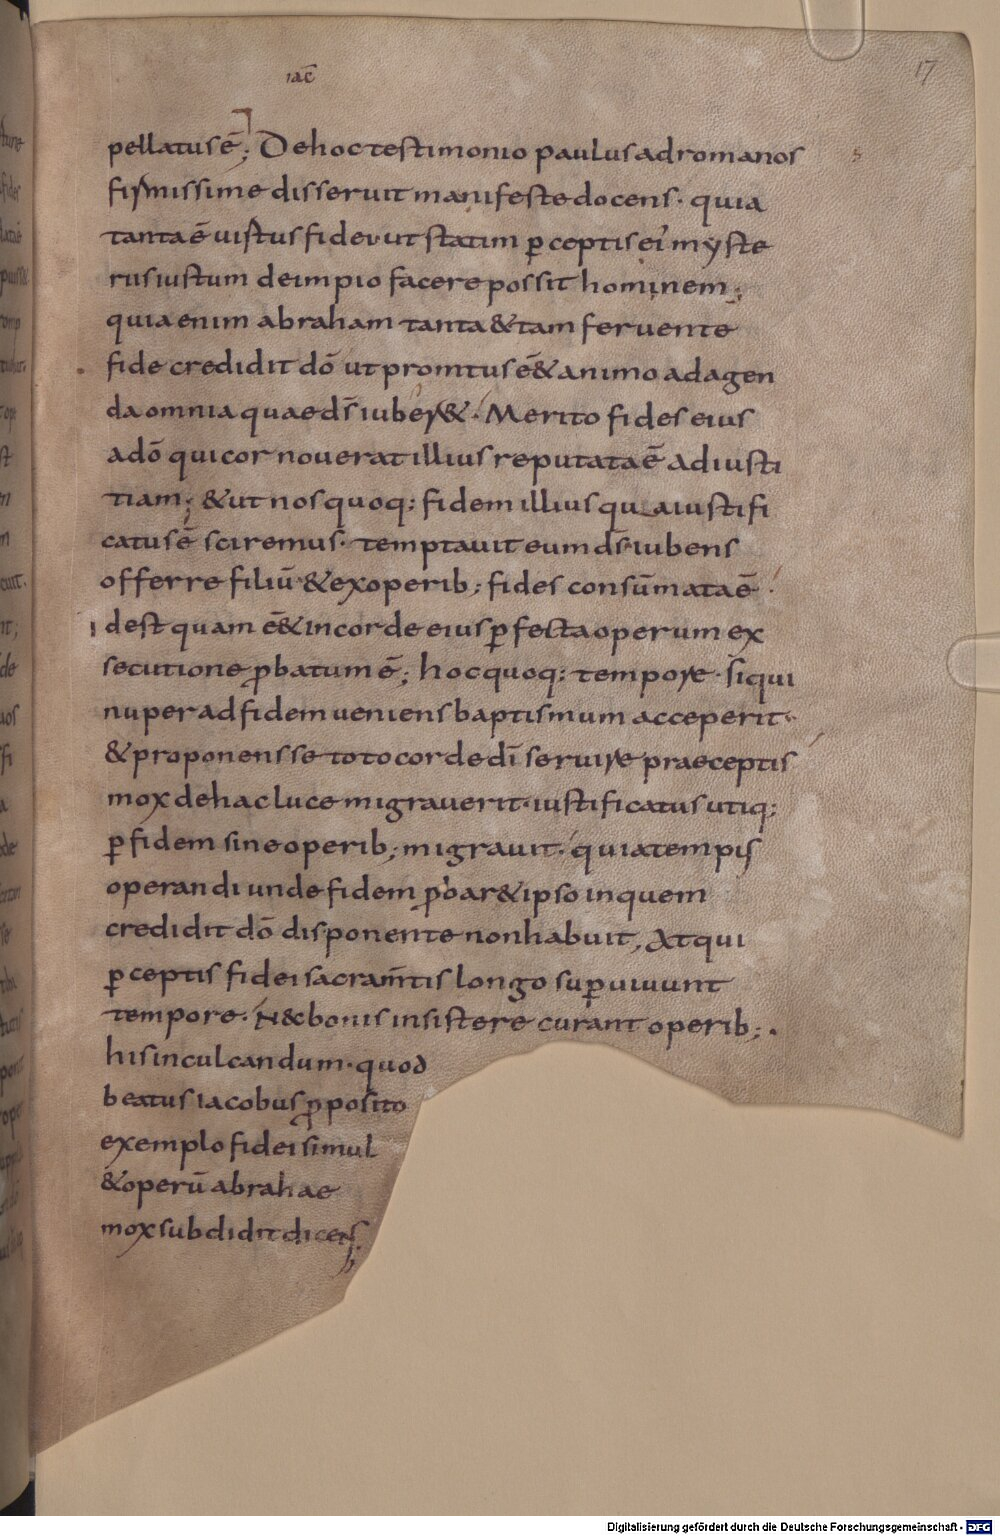 iac̄
17
pellatus ē; De hoc testimonio paulus ad romanos
firmissime disseruit manifeste docens· quia
tanta ē uirtus fidei· ut statim ꝑceptis ei' myste
riis iustum de impio facere possit hominem;
quia enim abraham tanta & tam feruente
fide credidit dō ut promtus ēē& animo ad agen
da omnia quae ds̄ iuber&· Merito fides eius
a dō qui cor nouerat illius reputata ē ad iusti
tiam; & ut nos quoq; fidem illius qua iustifi
catus ē sciremus· temptauit eum ds̄ iubens
offerre filiū· & ex operib; fides consūmata ē·
idest quam ēē& in corde eius ꝑfecta operum ex
secutione ꝓbatum ē; hoc quoq; tempore· siqui
nuper ad fidem ueniens baptismum acceperit·
& proponens se toto corde dī seruire praeceptis
mox de hac luce migrauerit· iustificatus utiq;
ꝑ fidem sine operib; migrauit· quia tempus
operandi unde fidem ꝓbar& ipso in quem
credidit dō disponente non habuit, At qui
ꝑceptis fidei sacram̄tis longo suꝑuiuunt
tempore· N& bonis insistere curant operib;·
his inculcandum· quod
beatus iacobus ꝓposito
exemplo fidei simul
& operū abrahae
mox subdidit dicens
Digitalisierung gefördert durch die Deutsche Forschungsgemeinschaft - DFG